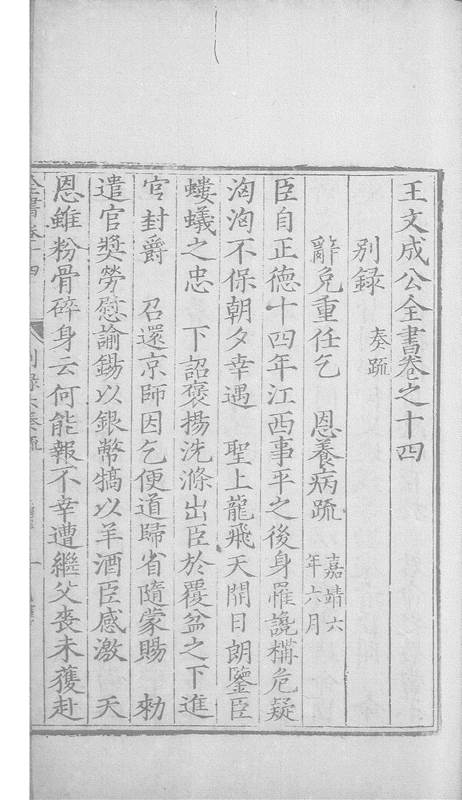 王文成公全書卷之十四
別録 奏疏
辭免重任乞 恩養病疏 嘉靖六年六月
臣自正德十四年江西事平之後身罹讒構危疑
洶洶不保朝夕幸遇 聖上龍飛天開日朗鑒臣
螻蟻之忠 下詔褒揚洗滌出臣於覆盆之下進
官封爵 召還京師因乞便道歸省隨蒙賜 勑
遣官奬勞慰諭錫以銀幣犒以羊酒臣感激 天
恩雖粉骨碎身云何能報不幸遭繼父喪未獲赴